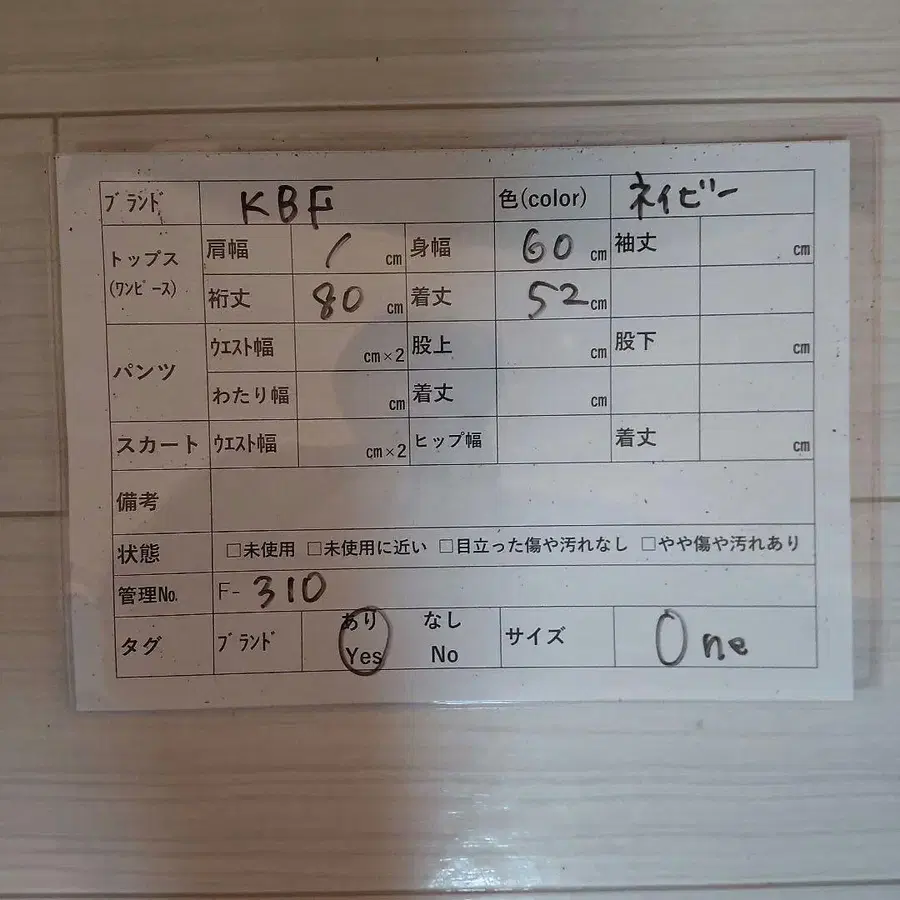 ブランド KBF 色(color) ネイビー
トップス (ワンピース) 肩幅 / cm 身幅 60 cm 袖丈 cm
裄丈 80 cm 着丈 52 cm
パンツ ウエスト幅 cm×2 股上 cm 股下 cm
わたり幅 cm 着丈 cm
スカート ウエスト幅 cm×2 ヒップ幅 着丈 cm
備考
状態 □未使用 □未使用に近い □目立った傷や汚れなし □やや傷や汚れあり
管理No. F- 310
タグ ブランド あり Yes なし No サイズ One